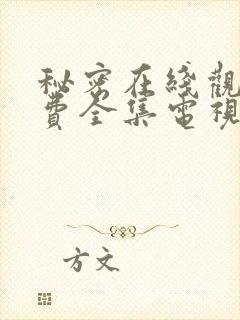 秘密在綫觀
費全集電視
方文